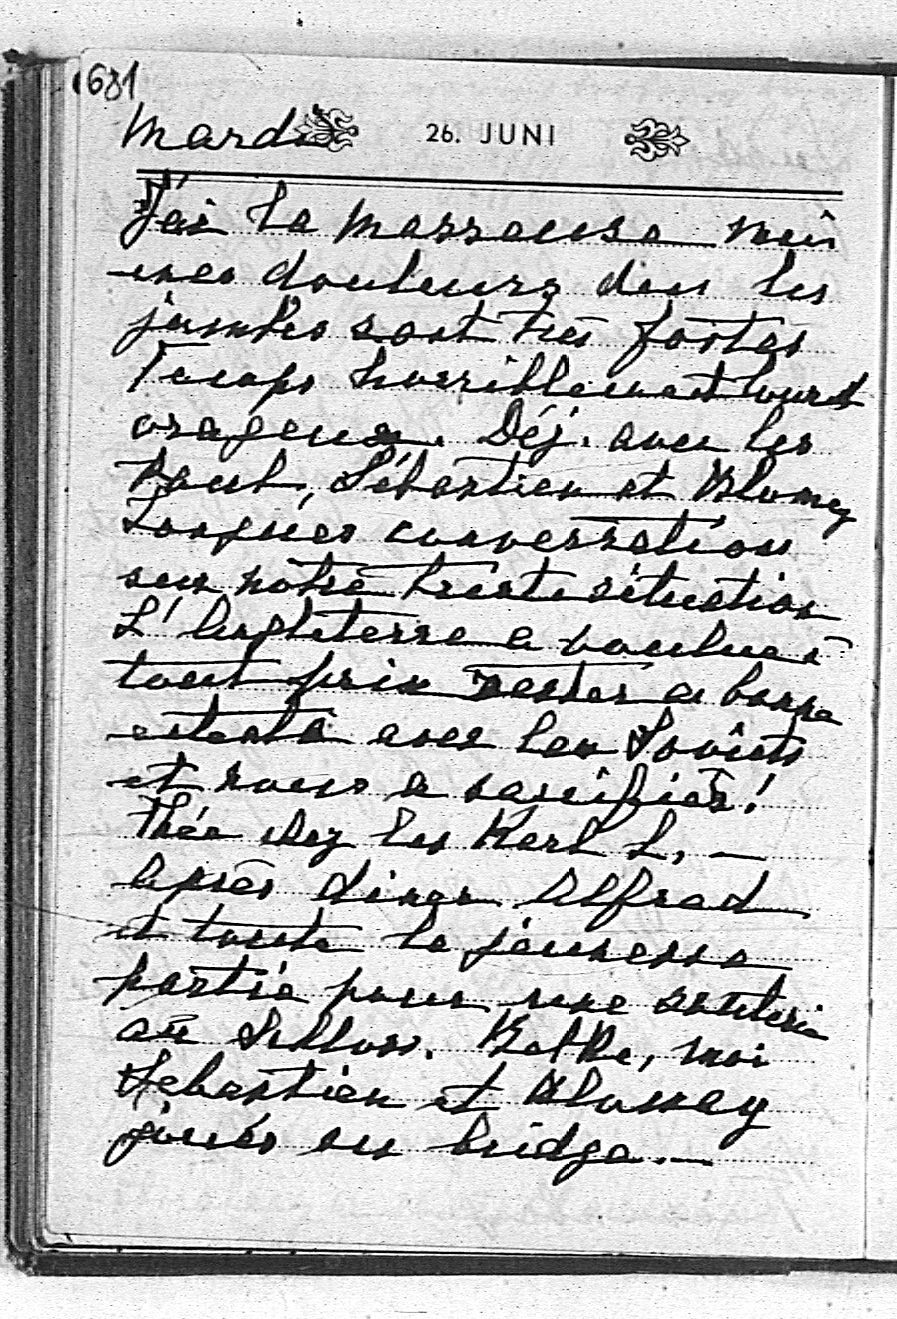 1681
Mardi 26. JUNI
J'ai la masseuse mais
mes douleurs dans les
jambes sont très fortes
Temps horriblement lourd
orageux. Déj. avec les
Paul, Sébastien et Blomey
Longues conversations
sur notre triste situation
L'Angleterre a voulu à
tout prix rester a bonne
entente avec les Soviets
et nous a sacrifiés!
Thée chez les Karl L. —
Après diner Alfred
et toute la jeunesse
partie pour une
au . , moi
Sébastien et Blomey
joués au bridge. —